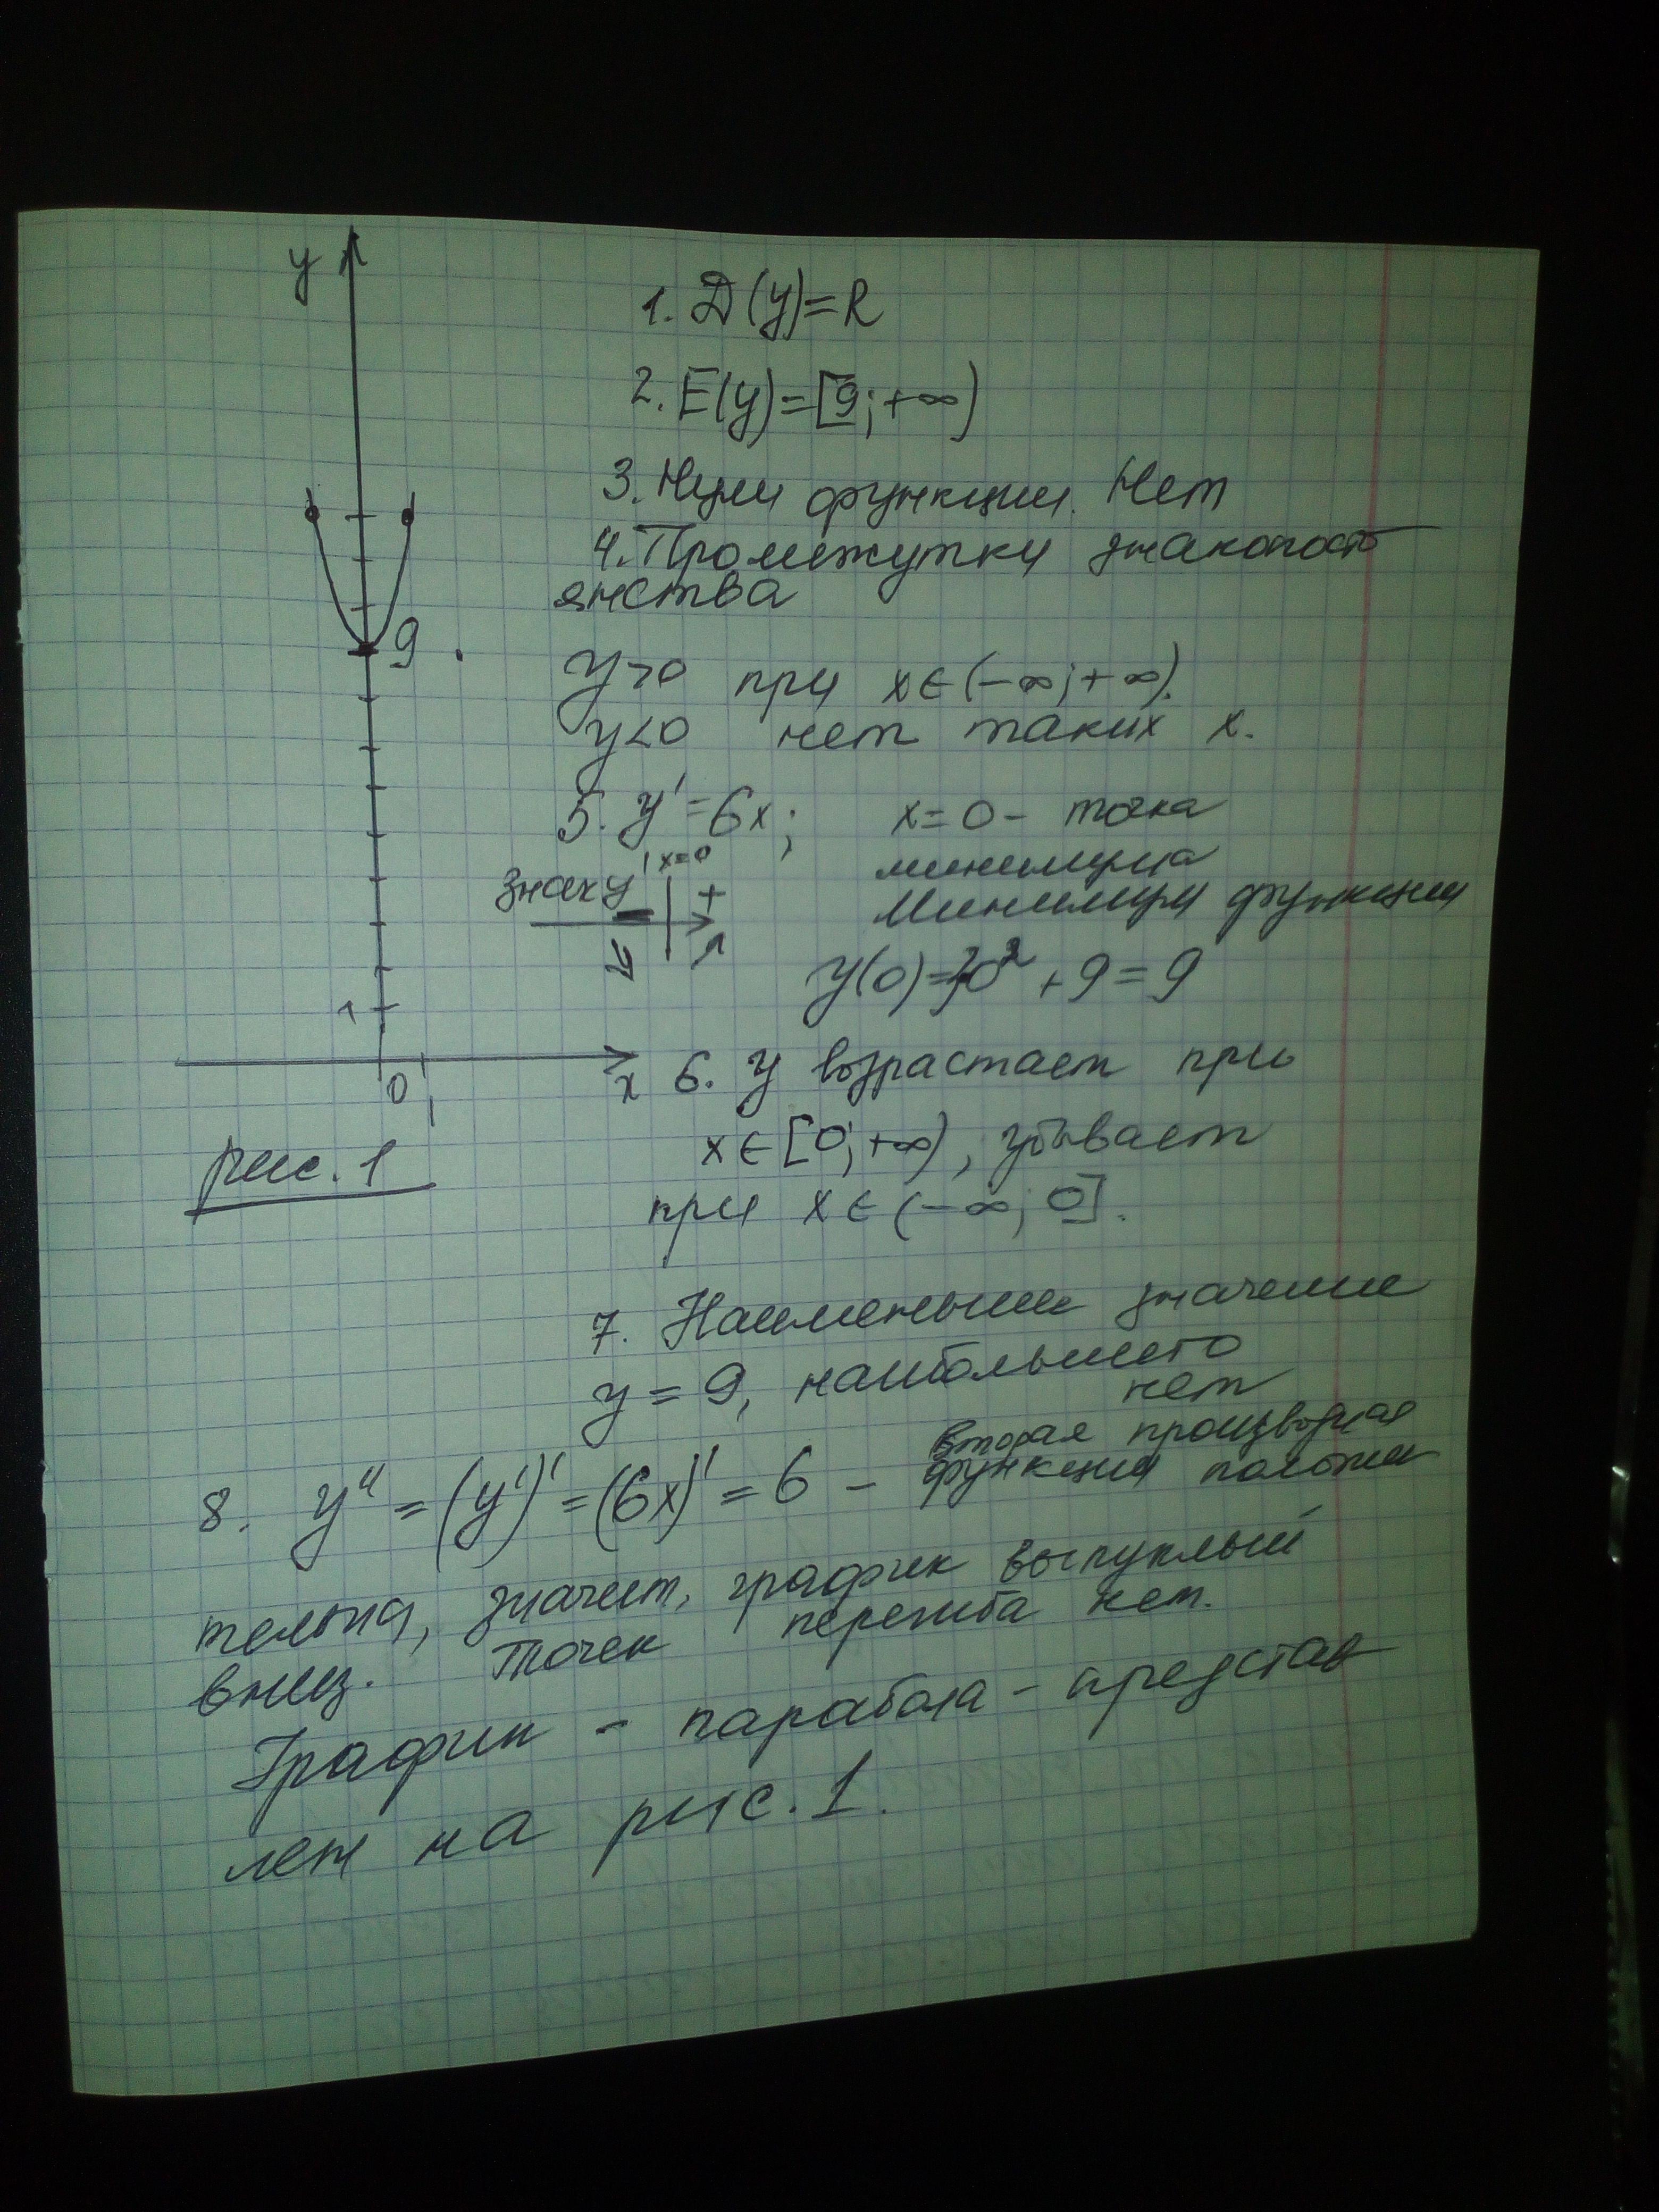 y
1. D(y)=R
2. E(y)=[9;+∞)
3. Нули функции. Нет
4. Промежутки знакопосто
янства
9
y>0 при x∈(-∞;+∞).
y<0 нет таких x.
5. y'=6x; x=0- точка
минимума
знак y' x=0
- +
Минимум функции
y(0)=3·0² +9=9
1
0 1 x
рис. 1
6. y возрастает при
x∈[0;+∞), убывает
при x∈(-∞; 0].
7. Наименьшее значение
y = 9, наибольшего
нет
8. y'' = (y')' = (6x)' = 6 – вторая производная
функции положи
тельна, значит, график выпуклый
вниз. Точек перегиба нет.
График - парабола - представ
лен на рис. 1.